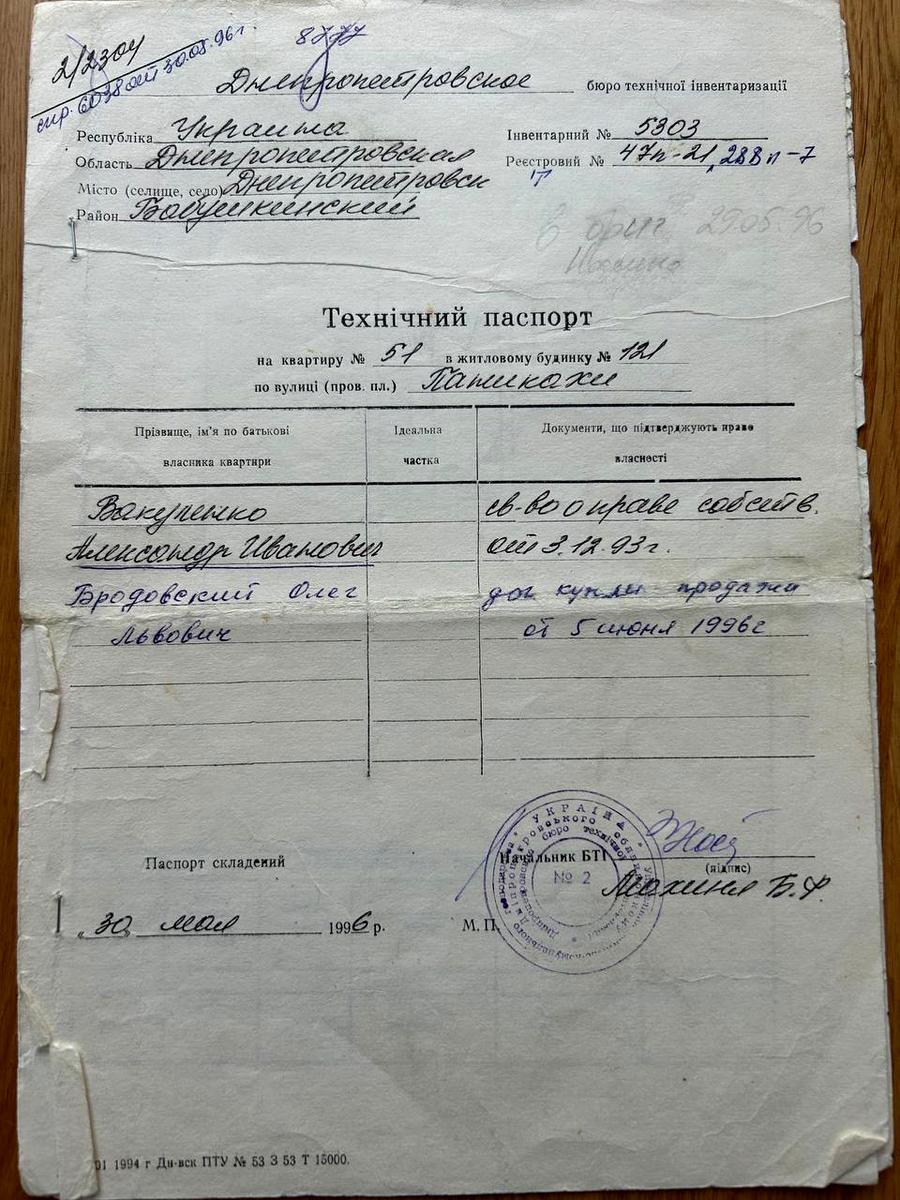 2/2304
спр. 6038 от 30.05.96г.
8777
Днепропетровское бюро технічної інвентаризації
Республіка Украина
Інвентарний № 5303
Область Днепропетровская
Реєстровий № 47п-21, 288п-7
Місто (селище, село) Днепропетровск
Район Бабушкинский
29.05.96
Технічний паспорт
на квартиру № 51 в житловому будинку № 121
по вулиці (пров. пл.) Паникахи
Прізвище, ім'я по батькові власника квартири
Ідеальна частка
Документи, що підтверджують право власності
Вакуленко св-во о праве собств.
Александр Иванович от 3.12.93г.
Бродовский Олег дог купли продажи
Львович от 5 июня 1996г
УКРАЇНА
№ 2
Паспорт складений
Начальник БТІ
(підпис)
Махиня Б.Ф
„30„ мая 1996 р.
М. П.
01 1994 г Дн-вск ПТУ № 53 З 53 Т 15000.